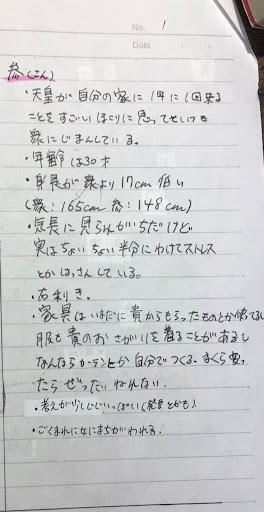 No. 1
Date
叅(さん)
・天皇が自分の家に1年に1回来る
ことをすごいほこりに思ってていつも
衆にじまんしている。
・年齢は30才
・身長が衆より17cm低い
(衆:165cm 叅:148cm)
・気長に見られがちだけど
実はちょいちょい半分にわけてストレス
とかはっさんしている。
・右利き。
・家具はいまだに貴からもらったものとか使ってるし
服も貴のおさがりを着ることがあるし
なんならカーテンとか自分でつくる。まくら変っ
たらぜったいねれない。
・考えが少しじじいっぽい(発言とかも)
・ごくまれに女にまちがわれる。